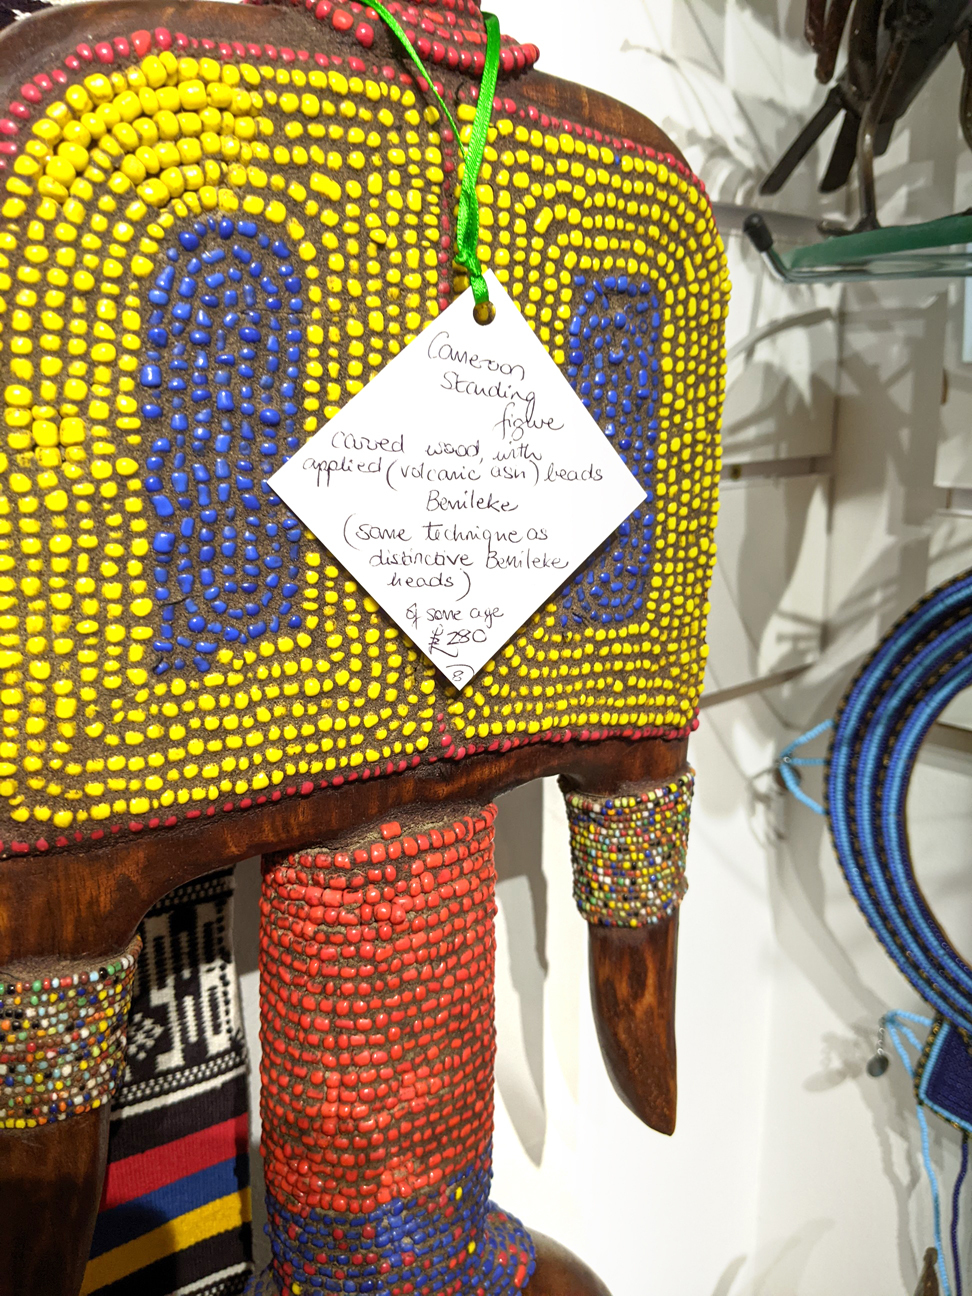 Cameroon
Standing
figure
carved wood, with
applied (volcanic ash) beads
Bemileke
(same technique as
distinctive Bemileke
heads)
& same age
£280
8